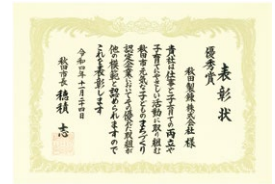 表彰状
優秀賞
秋田製錬株式会社 様
貴社は仕事と子育ての両立や
子育てにやさしい活動に取り組む
秋田市元気な子どものまちづくり
認定企業においてその優れた取組が
他の模範と認められますので
これを表彰します
令和四年十一月二十四日
秋田市長 穂積 志